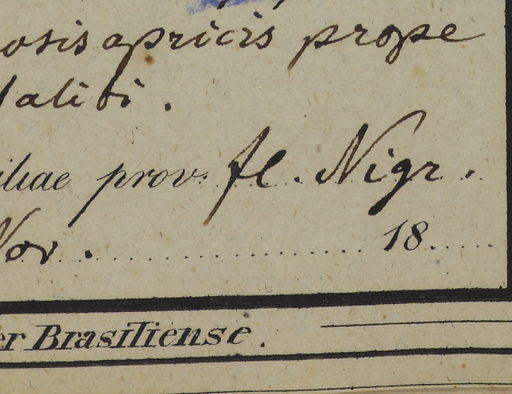 osis apricis prope
alibi.
iliae prov. fl. Nigr.
Nov. 18
er Brasiliense.